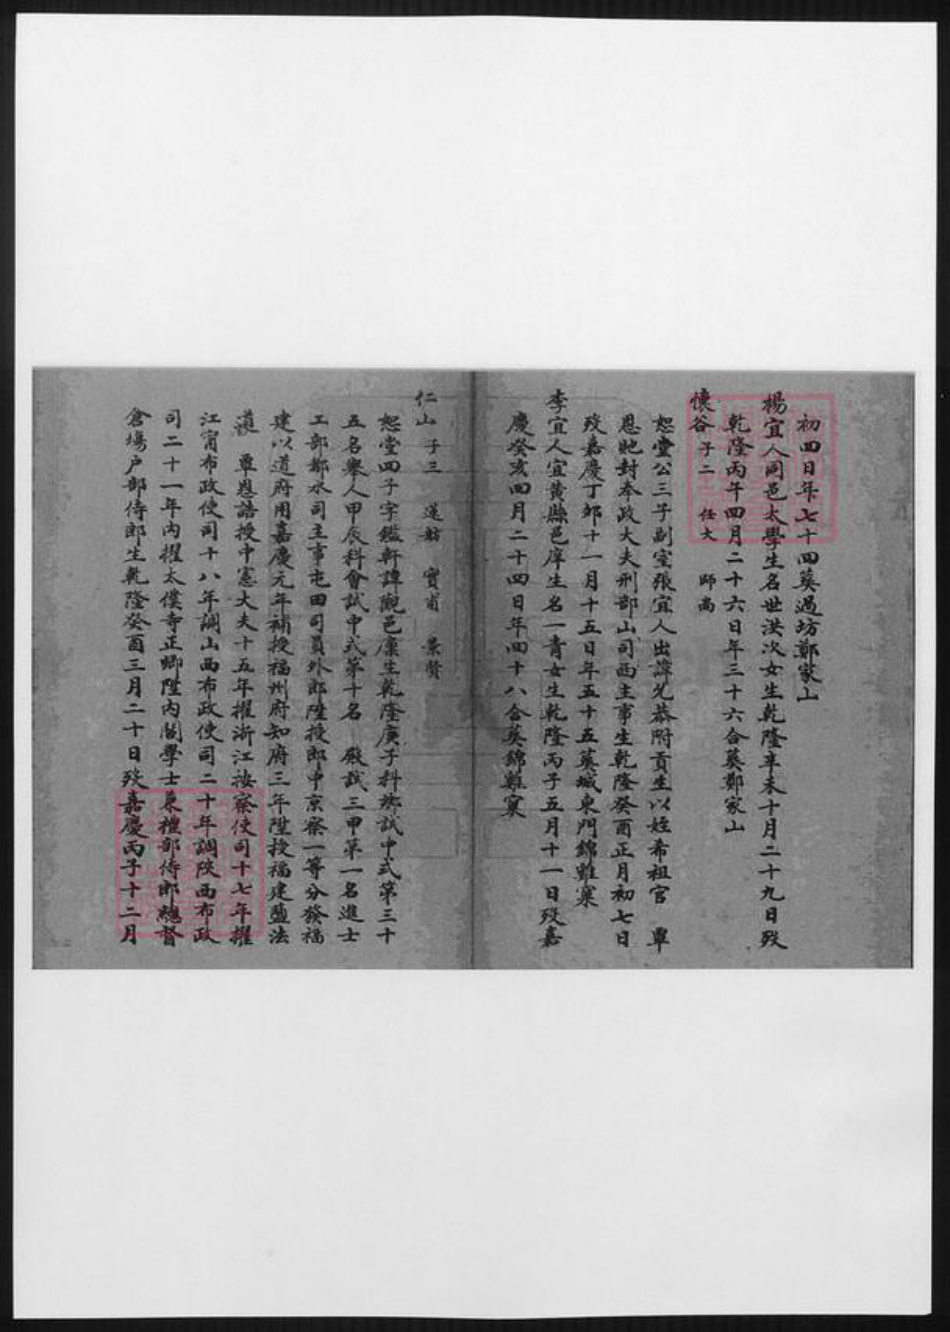 初四日年七十四葬過坊鄭家山
楊宜人同邑太學生名世洪次女生乾隆辛未十月二十九日歿
乾隆丙午四月二十六日年三十六合葬鄭家山
懷谷 子二 任大 師尚
恕堂公三子副室張宜人出諱光恭附貢生以姪希祖官 覃
恩貤封奉政大夫刑部山司西主事生乾隆癸酉正月初七日
歿嘉慶丁卯十一月十五日年五十五葬城東門錦雞窠
李宜人宜黃縣邑庠生名一青女生乾隆丙子五月十一日歿嘉
慶癸亥四月二十四日年四十八合葬錦雞窠
仁山 子三 蓮舫 寶甫 景賢
恕堂四子字鑑軒諱觀邑廩生乾隆庚子科鄉試中式第三十
五名舉人甲辰科會試中式第十名 殿試三甲第一名進士
工部都水司主事屯田司員外郎陞授郎中京察一等分發福
建以道府用嘉慶元年補授福州府知府三年陞授福建鹽法
道 覃恩誥授中憲大夫十五年擢浙江按察使司十七年擢
江甯布政使司十八年調山西布政使司二十年調陝西布政
司二十一年內擢太僕寺正卿陞內閣學士兼禮部侍郎總督
倉場戶部侍郎生乾隆癸酉三月二十日歿嘉慶丙子十二月